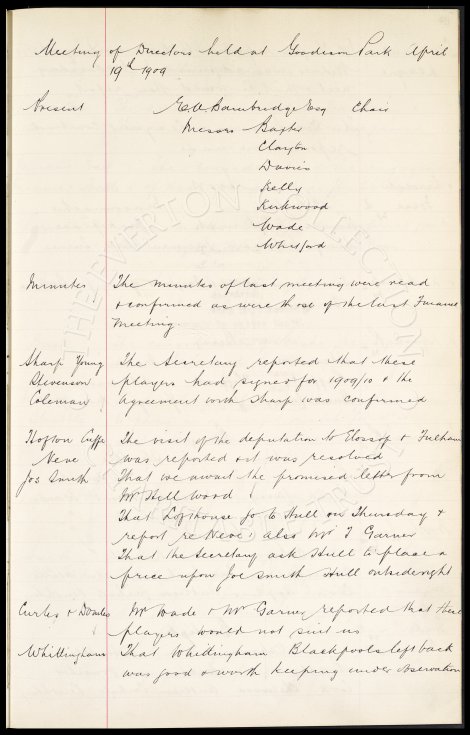 Meeting of Directors held at Goodison Park April
19th 1909
Present E.A. Bainbridge Esq Chair
Messrs Baxter
Clayton
Davies
Kelly
Kirkwood
Wade
Whitford
Minutes The minutes of last meeting were read
& confirmed as were those of the last Finance
Meeting.
Sharp Young The Secretary reported that these
Stevenson players had signed for 1909/10 & the
Coleman agreement with Sharp was confirmed
Hofton Cuffe The visit of the deputation to Glossop & Fulham
Neve was reported & it was resolved
Jos Smith That we await the promised letter from
Mr Hill Wood
That Lofthouse go to Hull on Thursday &
report re Neve, also Mr T Garner
That the Secretary ask Hull to place a
price upon Joe Smith Hull outside right
Curtis & Mr Wade & Mr Garner reported that these
players would not suit us
Whittingham That Whittingham Blackpools left back
was good & worth keeping under observation
THE EVERTON COLLECTION